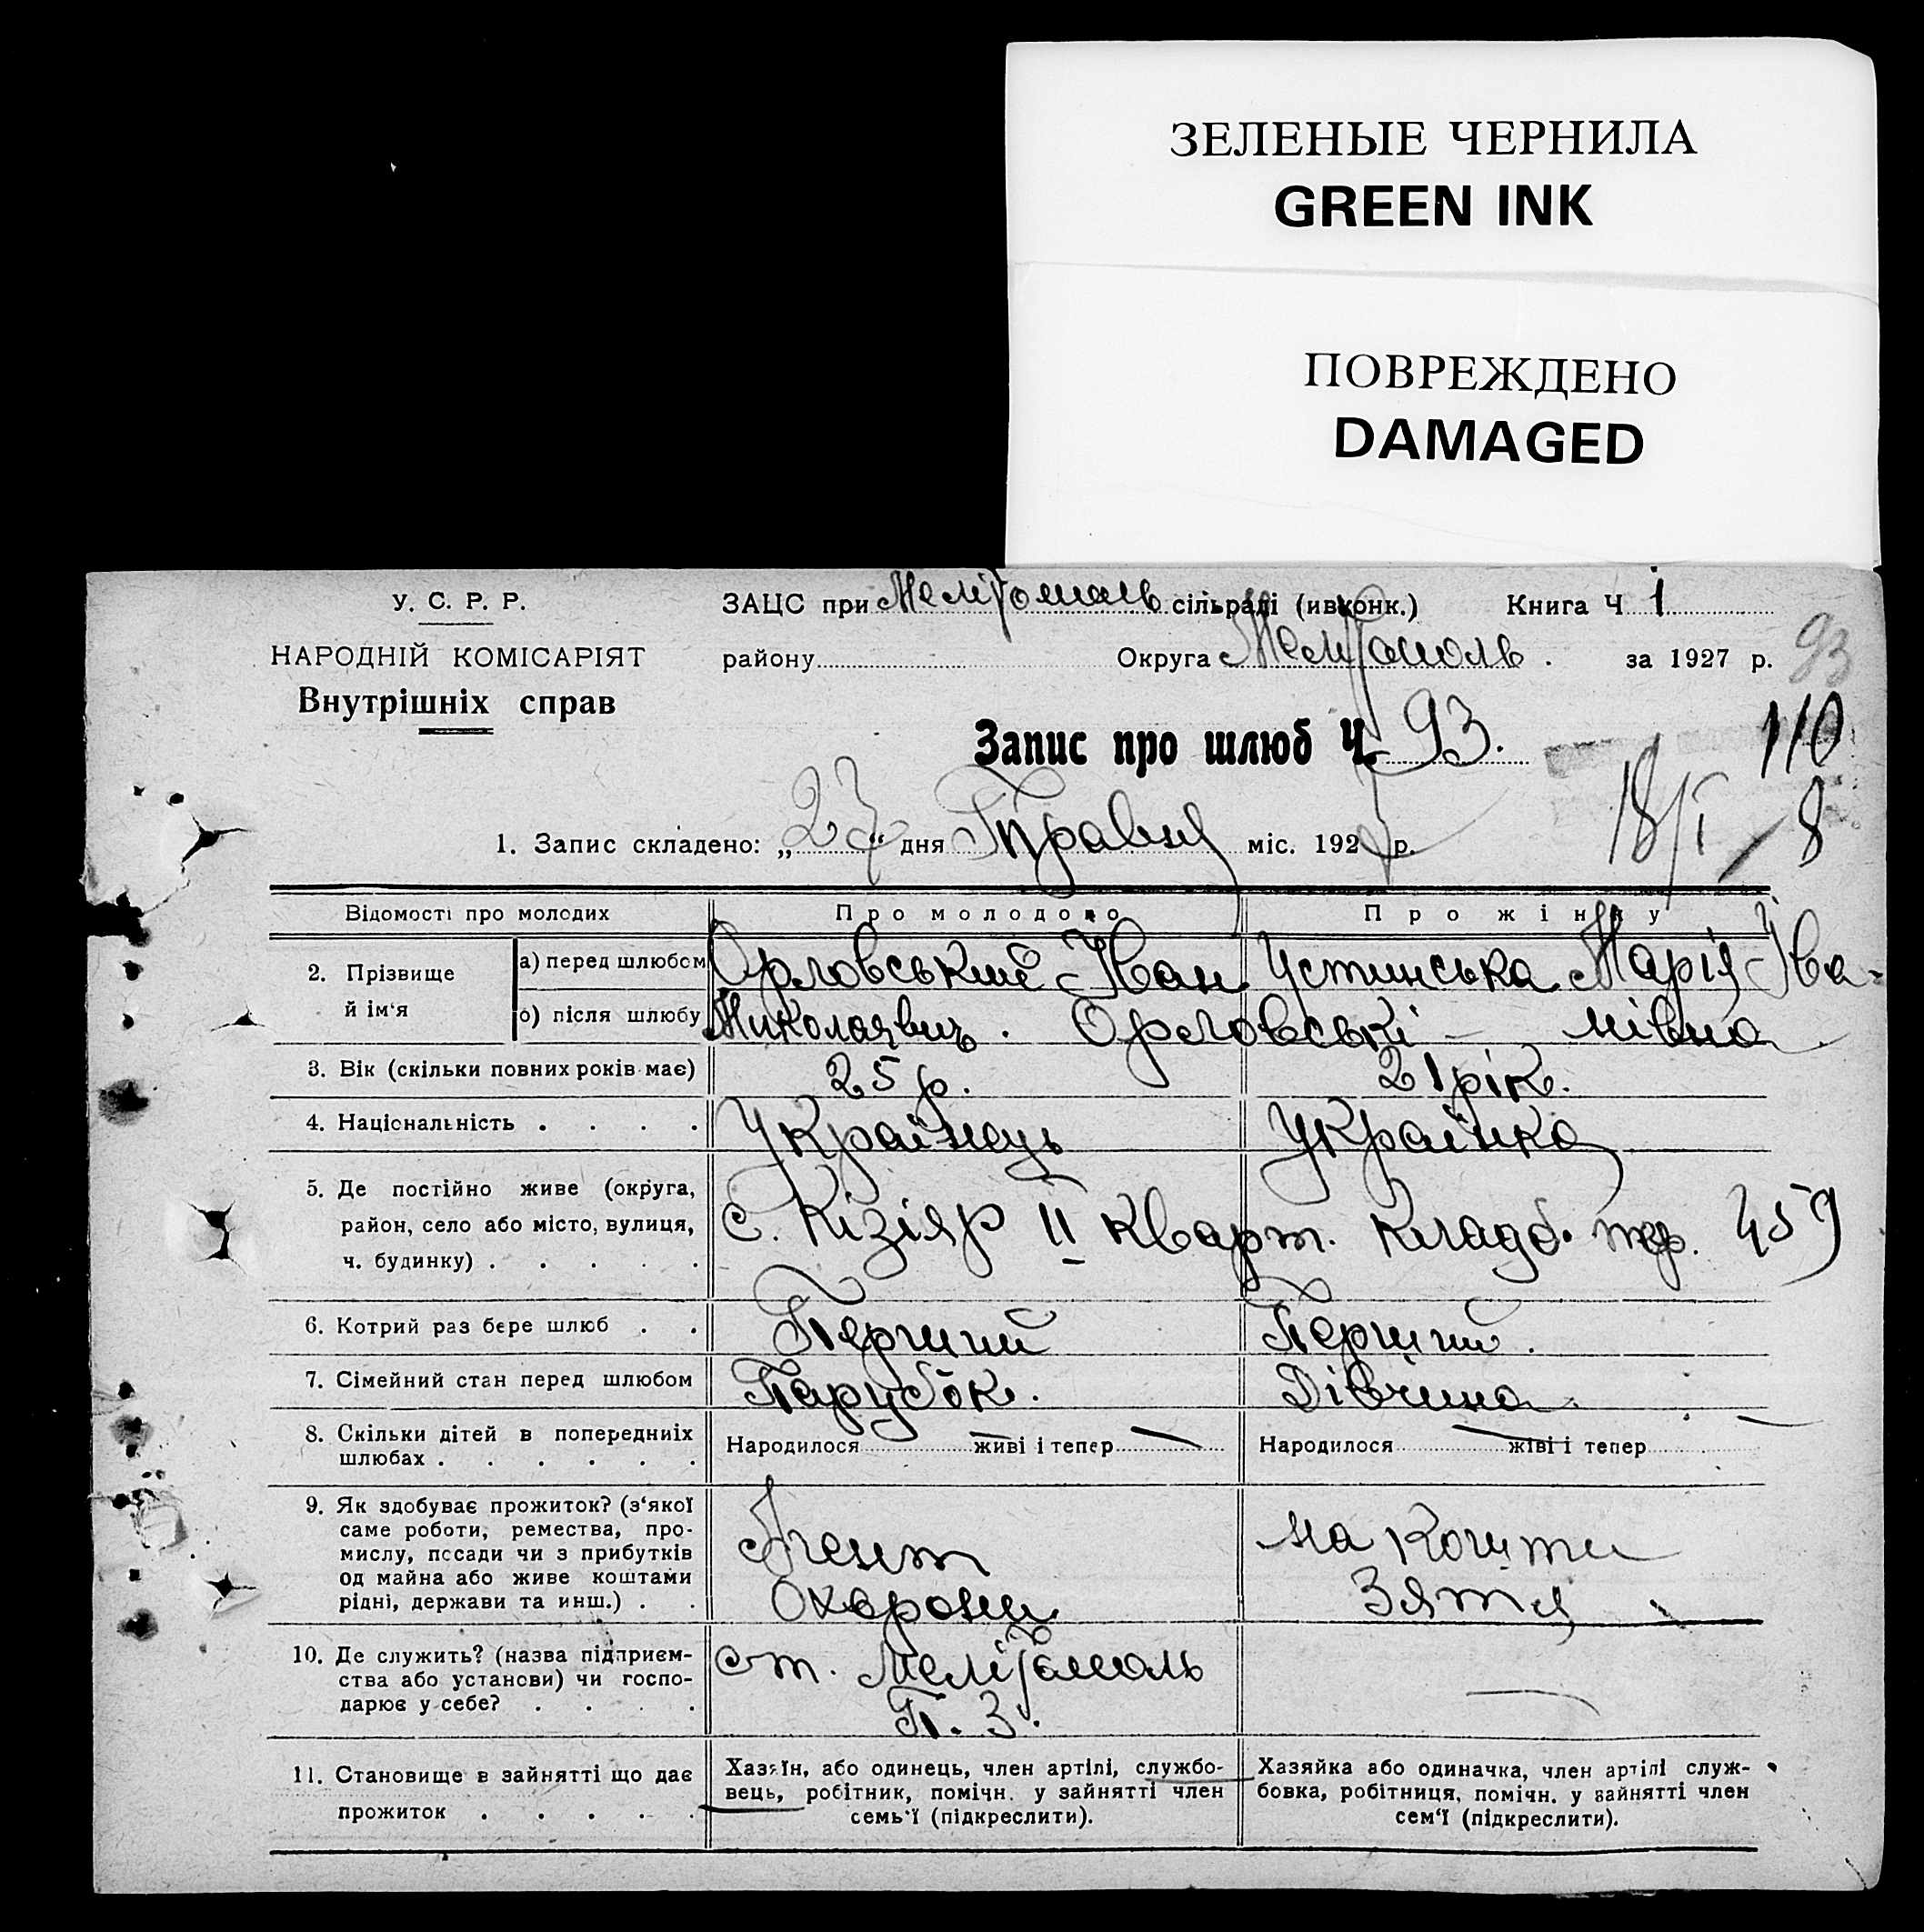 ЗЕЛЕНЫЕ ЧЕРНИЛА
GREEN INK
ПОВРЕЖДЕНО
DAMAGED
У. С. Р. Р.
НАРОДНІЙ КОМІСАРІЯТ
Внутрішніх справ
ЗАЦС при Мелітополь сільраді (ивконк.) Книга Ч 1
району Округа Мелітополь . за 1927 р.
93
Запис про шлюб Ч. 93.
110
18/I 8
1. Запис складено: „27“ дня Травня міс. 1927 р.
Відомості про молодих Про молодого Про жінку
2. Прізвище й ім‘я
а) перед шлюбом Орловський Іван Устинська Марія Іва-
б) після шлюбу Миколаявич . Орловські — нівна
3. Вік (скільки повних років має) 25 р. 21 рік.
4. Національність . . . . Українець Українка
5. Де постійно живе (округа,
район, село або місто, вулиця,
ч. будинку) . . . . .
с. Кізіяр II Кварт. Кладб. 459
6. Котрий раз бере шлюб . . Перший Перший.
7. Сімейний стан перед шлюбом Парубок. Дівчина.
8. Скільки дітей в попередниіх
шлюбах . . . . . .
Народилося — живі і тепер — Народилося — жіві і тепер —
9. Як здобуває прожиток? (з‘якої
саме роботи, ремества, про-
мислу, посади чи з прибутків
од майна або живе коштами
рідні, держави та инш.) . .
Агент
Охорони
на кошти
Зятя
10. Де служить? (назва підприєм-
ства або установи) чи госпо-
дарює у себе? . . . .
ст. Мелітополь
П. З.
—
11. Становище в зайнятті що дає
прожиток . . . . .
Хазяїн, або одинець, член артілі, службо-
вець, робітник, помічн. у зайнятті член
семь‘ї (підкреслити).
Хазяйка або одиначка, член артілі служ-
бовка, робітниця, помічн. у зайнятті член
сем‘ї (підкреслити).